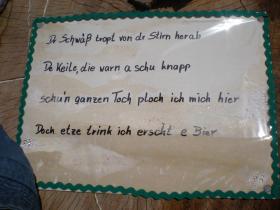 De Schwäß tropt von dr Stirn herab
De Keile, die warn a schu knapp
schu'n ganzen Toch ploch ich mich hier
Doch etze trink ich erscht e Bier